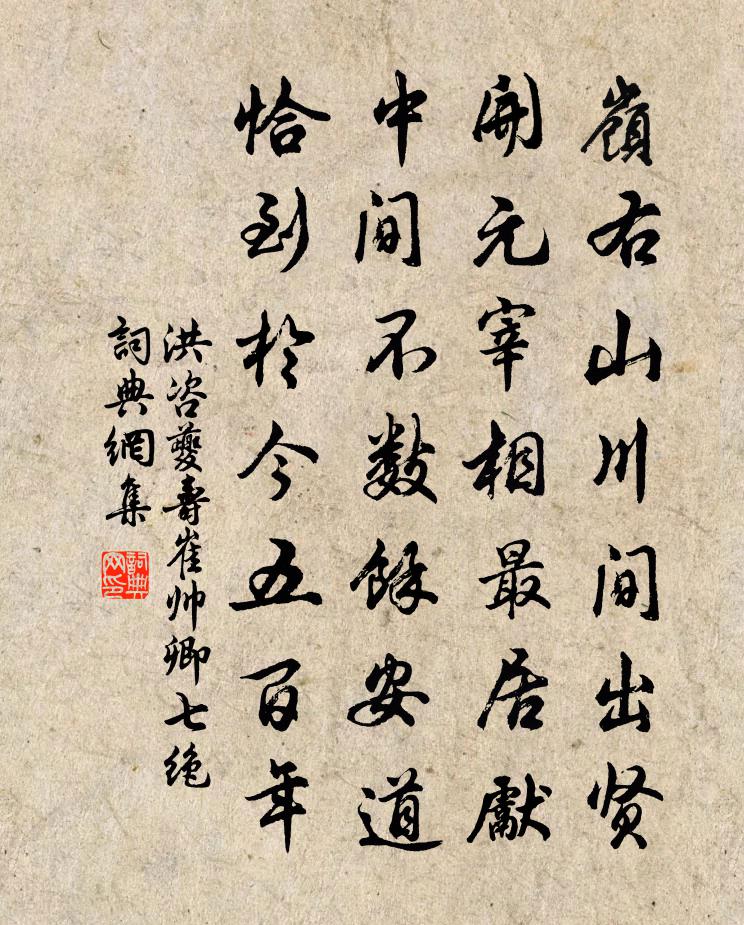 嶺右山川间出贤
開元宰相最居獻
中间不数餘安道
恰到於今五百年
洪咨夔壽崔帅卿七絶
詞典網集
詞典网印